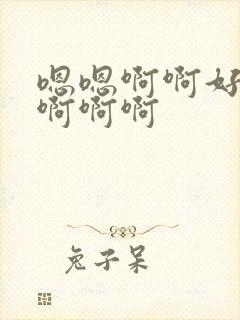 嗯嗯啊啊好
啊啊啊
兔子呆